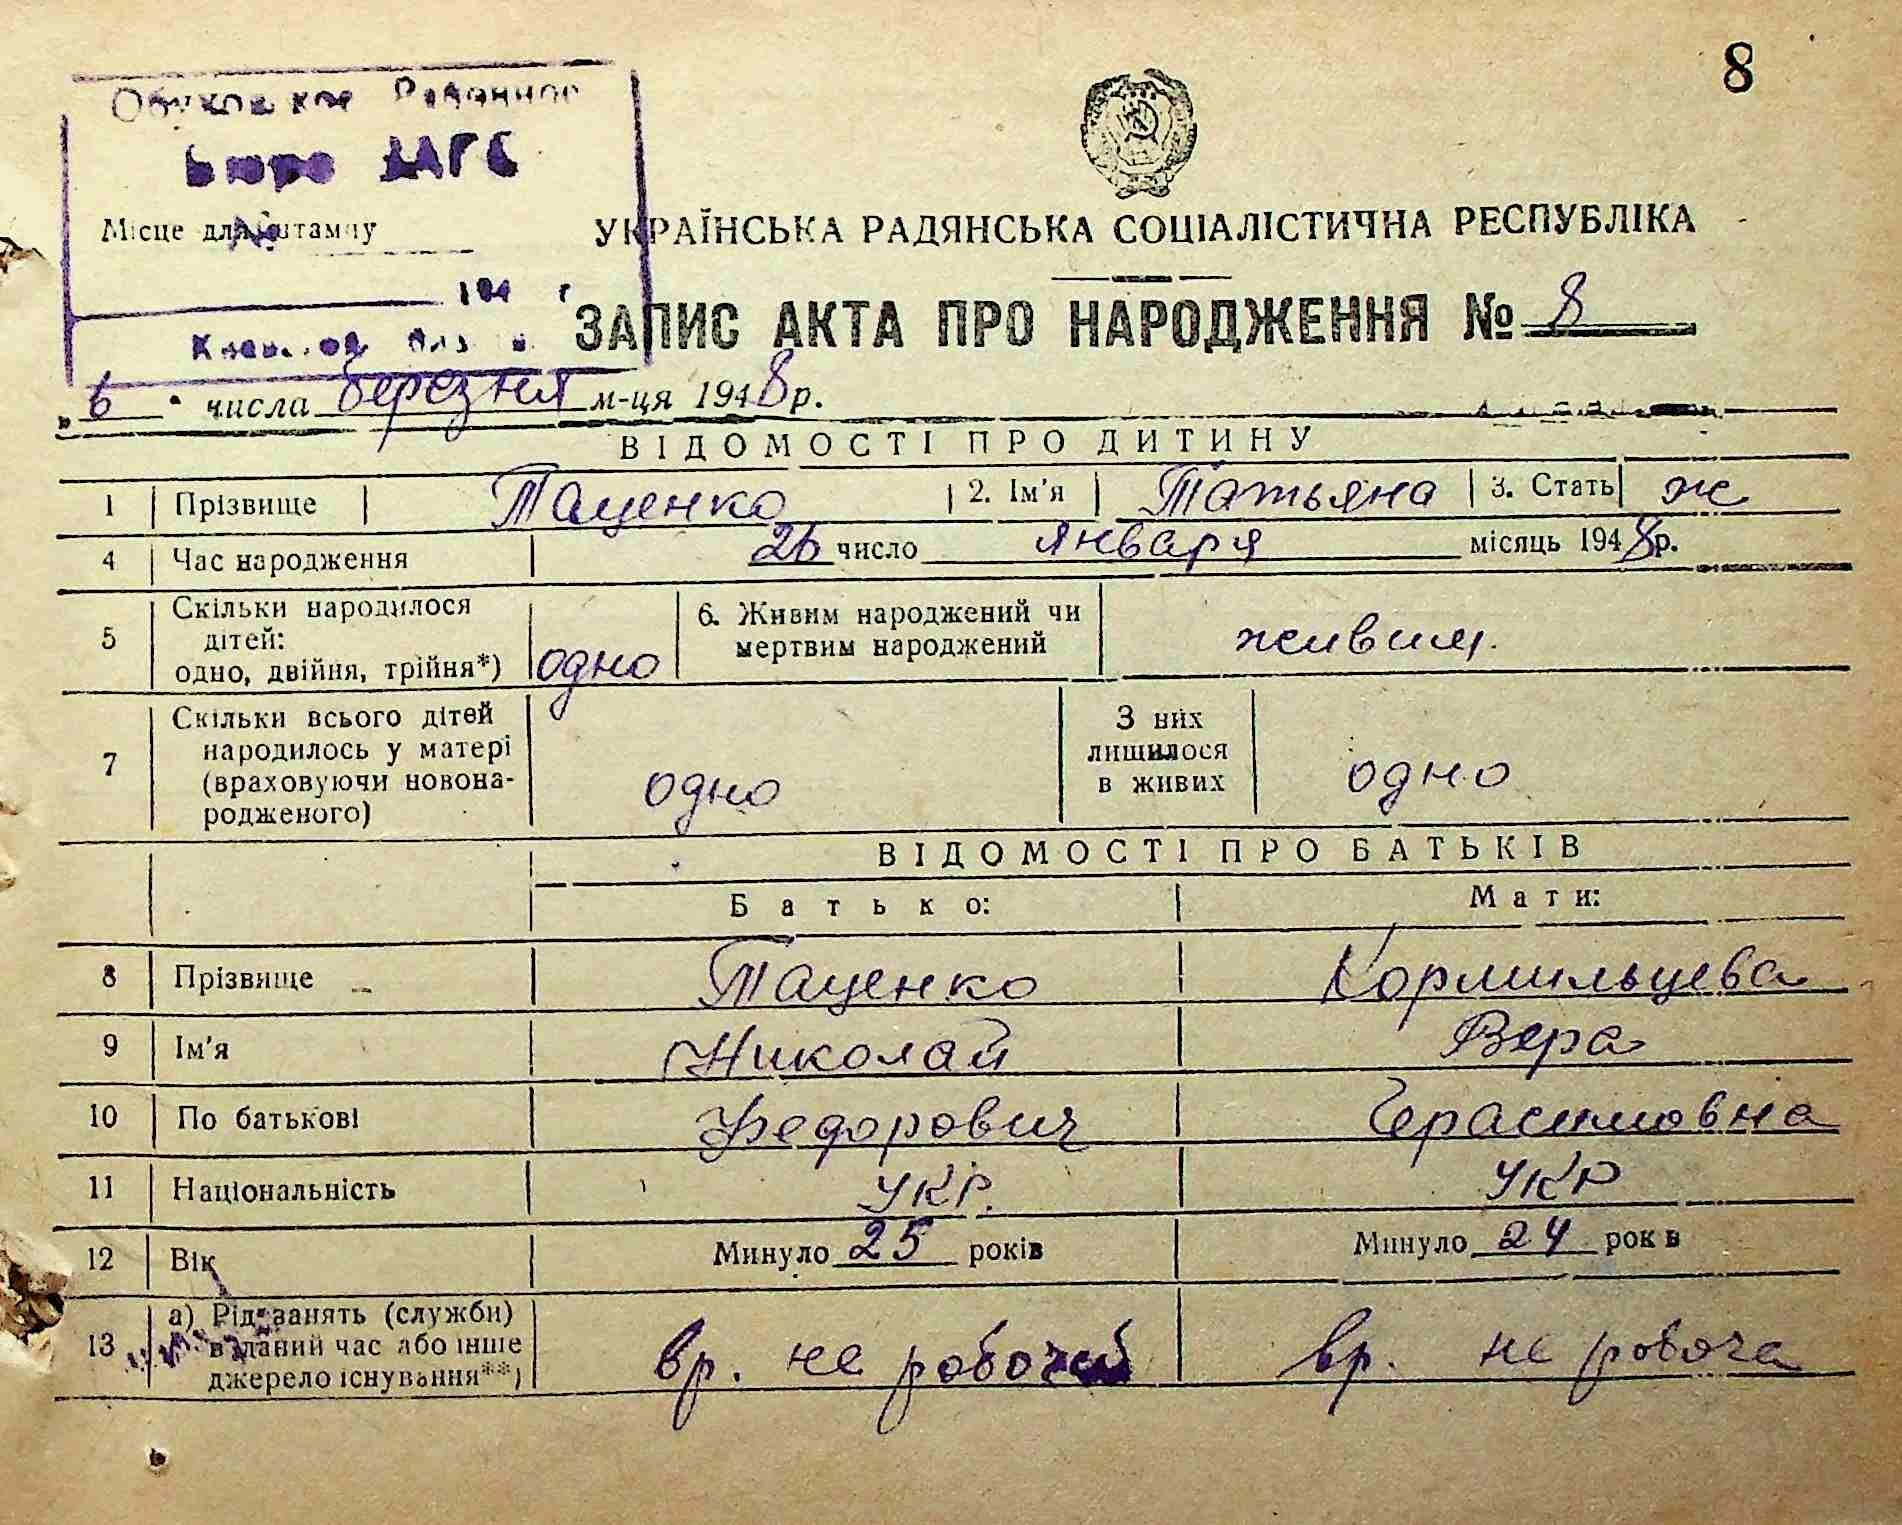 8
Обуховское Районное
Бюро ЗАГС
Місце для штампу
194 г
УКРАЇНСЬКА РАДЯНСЬКА СОЦІАЛІСТИЧНА РЕСПУБЛІКА
ЗАПИС АКТА ПРО НАРОДЖЕННЯ № 8
„6" числа березня м-ця 1948 р.
ВІДОМОСТІ ПРО ДИТИНУ
1 Прізвище Таценко 2. Ім'я Татьяна 3. Стать ж
4 Час народження 26 число января місяць 1948 р.
5 Скільки народилося дітей: одно, двійня, трійня*) одно 6. Живим народжений чи мертвим народжений живим.
7 Скільки всього дітей народилось у матері (враховуючи новонародженого) одно З них лишилося в живих одно
ВІДОМОСТІ ПРО БАТЬКІВ
Батько: Мати:
8 Прізвище Таценко Кормильцева
9 Ім'я Николай Вера
10 По батькові Федорович Герасимовна
11 Національність УКР. УКР
12 Вік Минуло 25 років Минуло 24 років
13 а) Рід занять (служби) в даний час або інше джерело існування**) вр. не робочий вр. не робоча